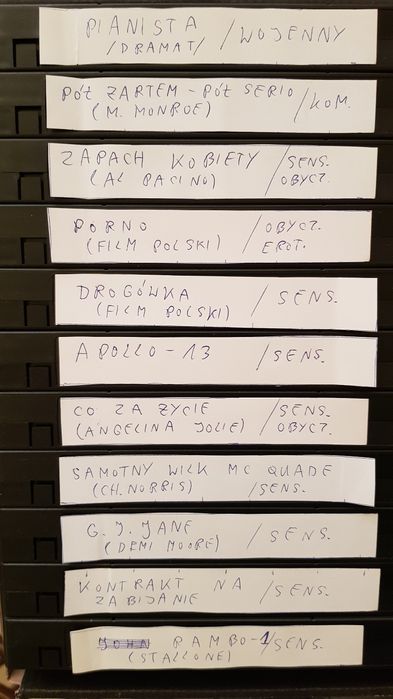 PIANISTA / WOJENNY
/DRAMAT/
PÓŁ ŻARTEM - PÓŁ SERIO / KOM.
(M. MONROE)
ZAPACH KOBIETY / SENS.
(AL PACINO) OBYCZ.
PORNO / OBYCZ.
(FILM POLSKI) EROT.
DROGÓWKA / SENS.
(FILM POLSKI)
APOLLO - 13 / SENS.
CO ZA ŻYCIE / SENS.
(ANGELINA JOLIE) OBYCZ.
SAMOTNY WILK MC QUADE
(CH. NORRIS) /SENS.
G. I. JANE / SENS.
(DEMI MOORE)
KONTRAKT NA / SENS.
ZABIJANIE
RAMBO-1/SENS.
(STALLONE)